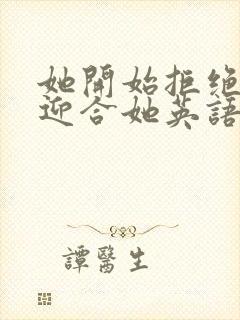 她開始拒絕
迎合她英語
譚醫生